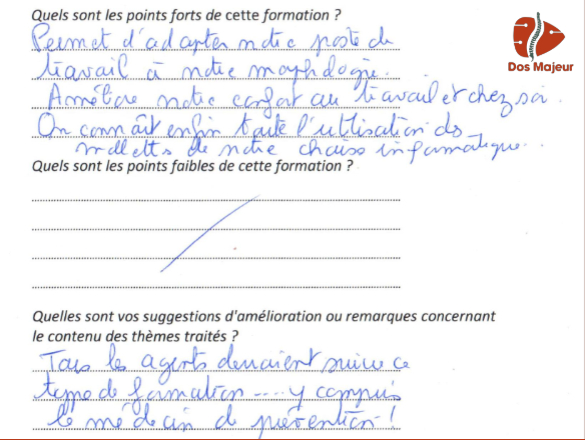 Quels sont les points forts de cette formation ?
Dos Majeur
Permet d'adapter notre poste de
travail à notre morphologie.
Améliore notre confort au travail et chez soi.
On connaît enfin toute l'utilisation des
molettes de notre chaise informatique.
Quels sont les points faibles de cette formation ?
Quelles sont vos suggestions d'amélioration ou remarques concernant
le contenu des thèmes traités ?
Tous les agents devraient suivre ce
type de formation .... y compris
le médecin de prévention !